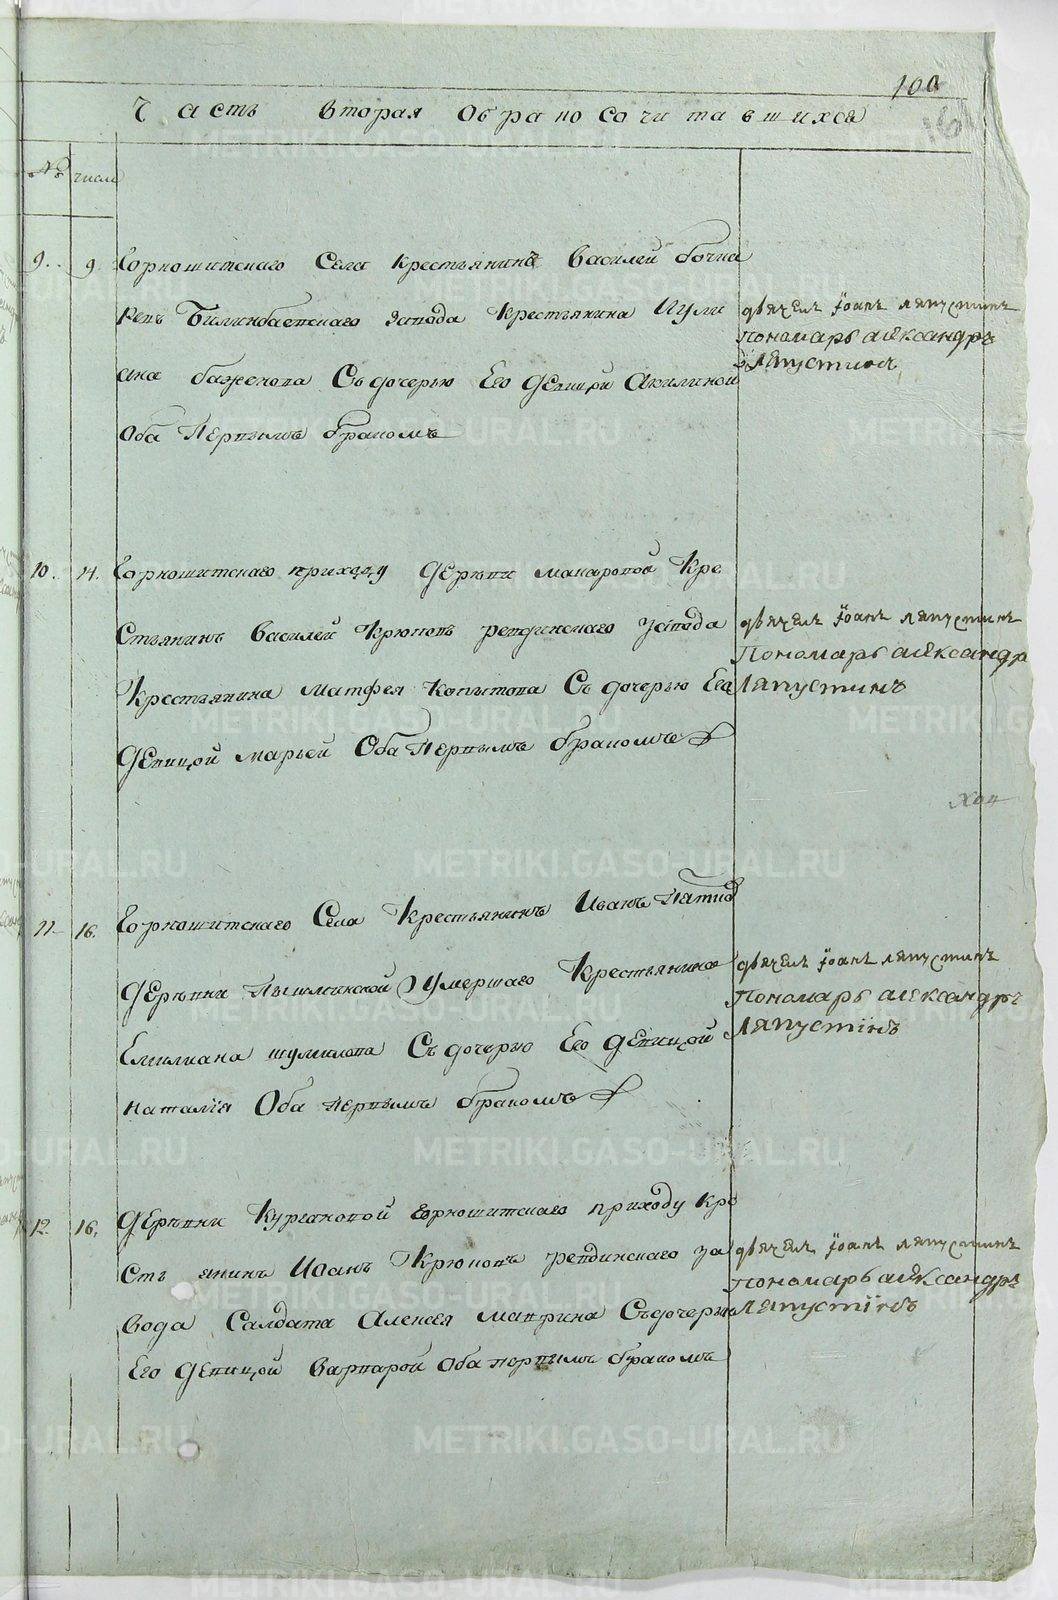 100
Часть вторая о бракосочитавшихся
№ число
9. 9. Горношитскаго Села крестьянинъ Василей бочка
ревъ Билинбаевскаго завода крестьянина Иули
ана баженова Съ дочерью Его Девицей Акилиной
Оба Первымъ бракомъ
Диячекъ Іоанъ ляпустинъ
Пономарь александръ
Ляпустинъ
10. 14. Горношитскаго приходу Деревни макаровой Кре
Стьянинъ Василей Крюковъ ревдинскаго завода
Крестьянина Матфея Копытова Съ дочерью Его
Девицой марьей Оба Первымъ бракомъ
Диячекъ Іоанъ ляпустинъ
Пономарь александр
Ляпустинъ
11. 16. Горношитскаго Села Крестьянинъ Иванъ
Деревни Пышминской Умершаго Крестьянина
Емилиана шумилова Съ дочерью Его Девицой
Наталія Оба первымъ бракомъ
Диячекъ Іоанъ ляпустинъ
Пономарь александръ
Ляпустінъ
12. 16. Деревни Кургановой горношитскаго приходу кре
Стьянинъ Иоанъ Крюковъ ревдинскаго за
вода Салдата Алексея маврина Съ дочерью
Его Девицой Варварой Оба первымъ бракомъ
Диячекъ Іоанъ ляпустинъ
Пономарь александръ
Ляпустінъ
METRIKI.GASO-URAL.RU